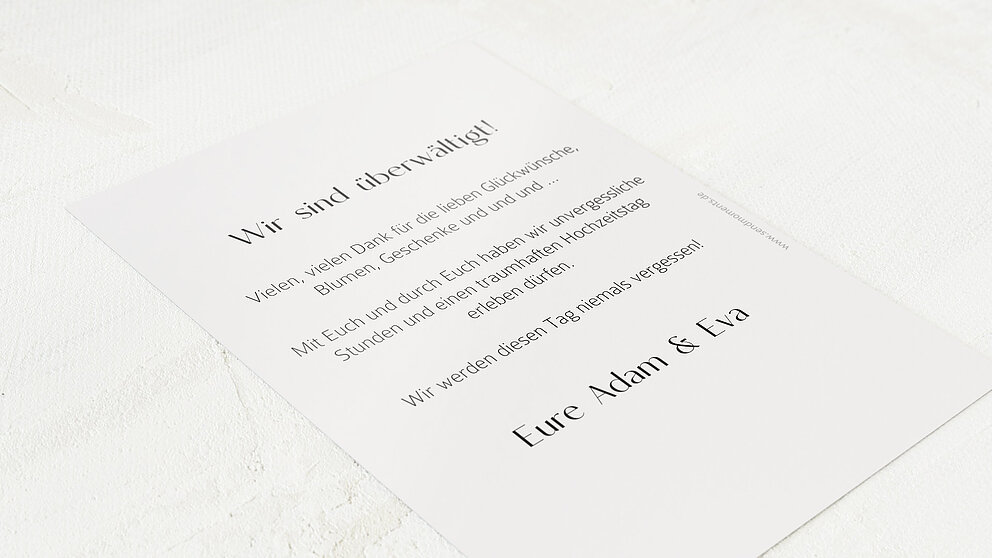 Wir sind überwältigt!
Vielen, vielen Dank für die lieben Glückwünsche,
Blumen, Geschenke und und und ...
Mit Euch und durch Euch haben wir unvergessliche
Stunden und einen traumhaften Hochzeitstag
erleben dürfen.
Wir werden diesen Tag niemals vergessen!
Eure Adam & Eva
www.sendmoments.de